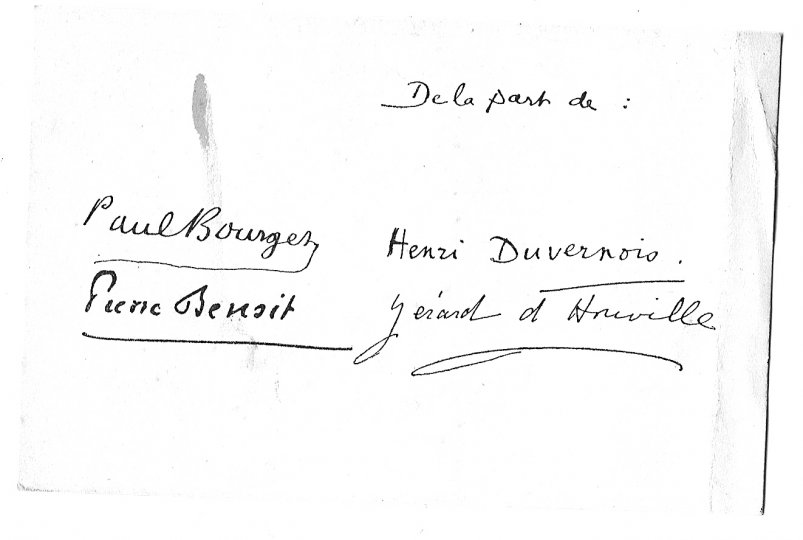 De la part de :
Paul Bourget
Henri Duvernois.
Pierre Benoit
Gérard d'Houville